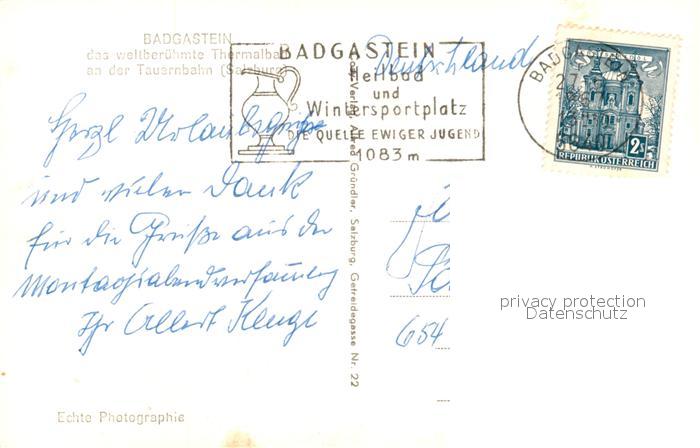 BADGASTEIN
das weltberühmte Thermalbad
an der Tauernbahn (Salzburg)
BADGASTEIN
Heilbad
und
Wintersportplatz
DIE QUELLE EWIGER JUGEND
1083 m
Deutschland
BADGASTEIN
2 S
REPUBLIK ÖSTERREICH
Herzl Urlaubsgrüße
und vielen Dank
für die Grüße aus der
Montagsabendversammlg
Ihr Albert
Verlag Alfred Gründler, Salzburg, Getreidegasse Nr. 22
654
privacy protection
Datenschutz
Echte Photographie